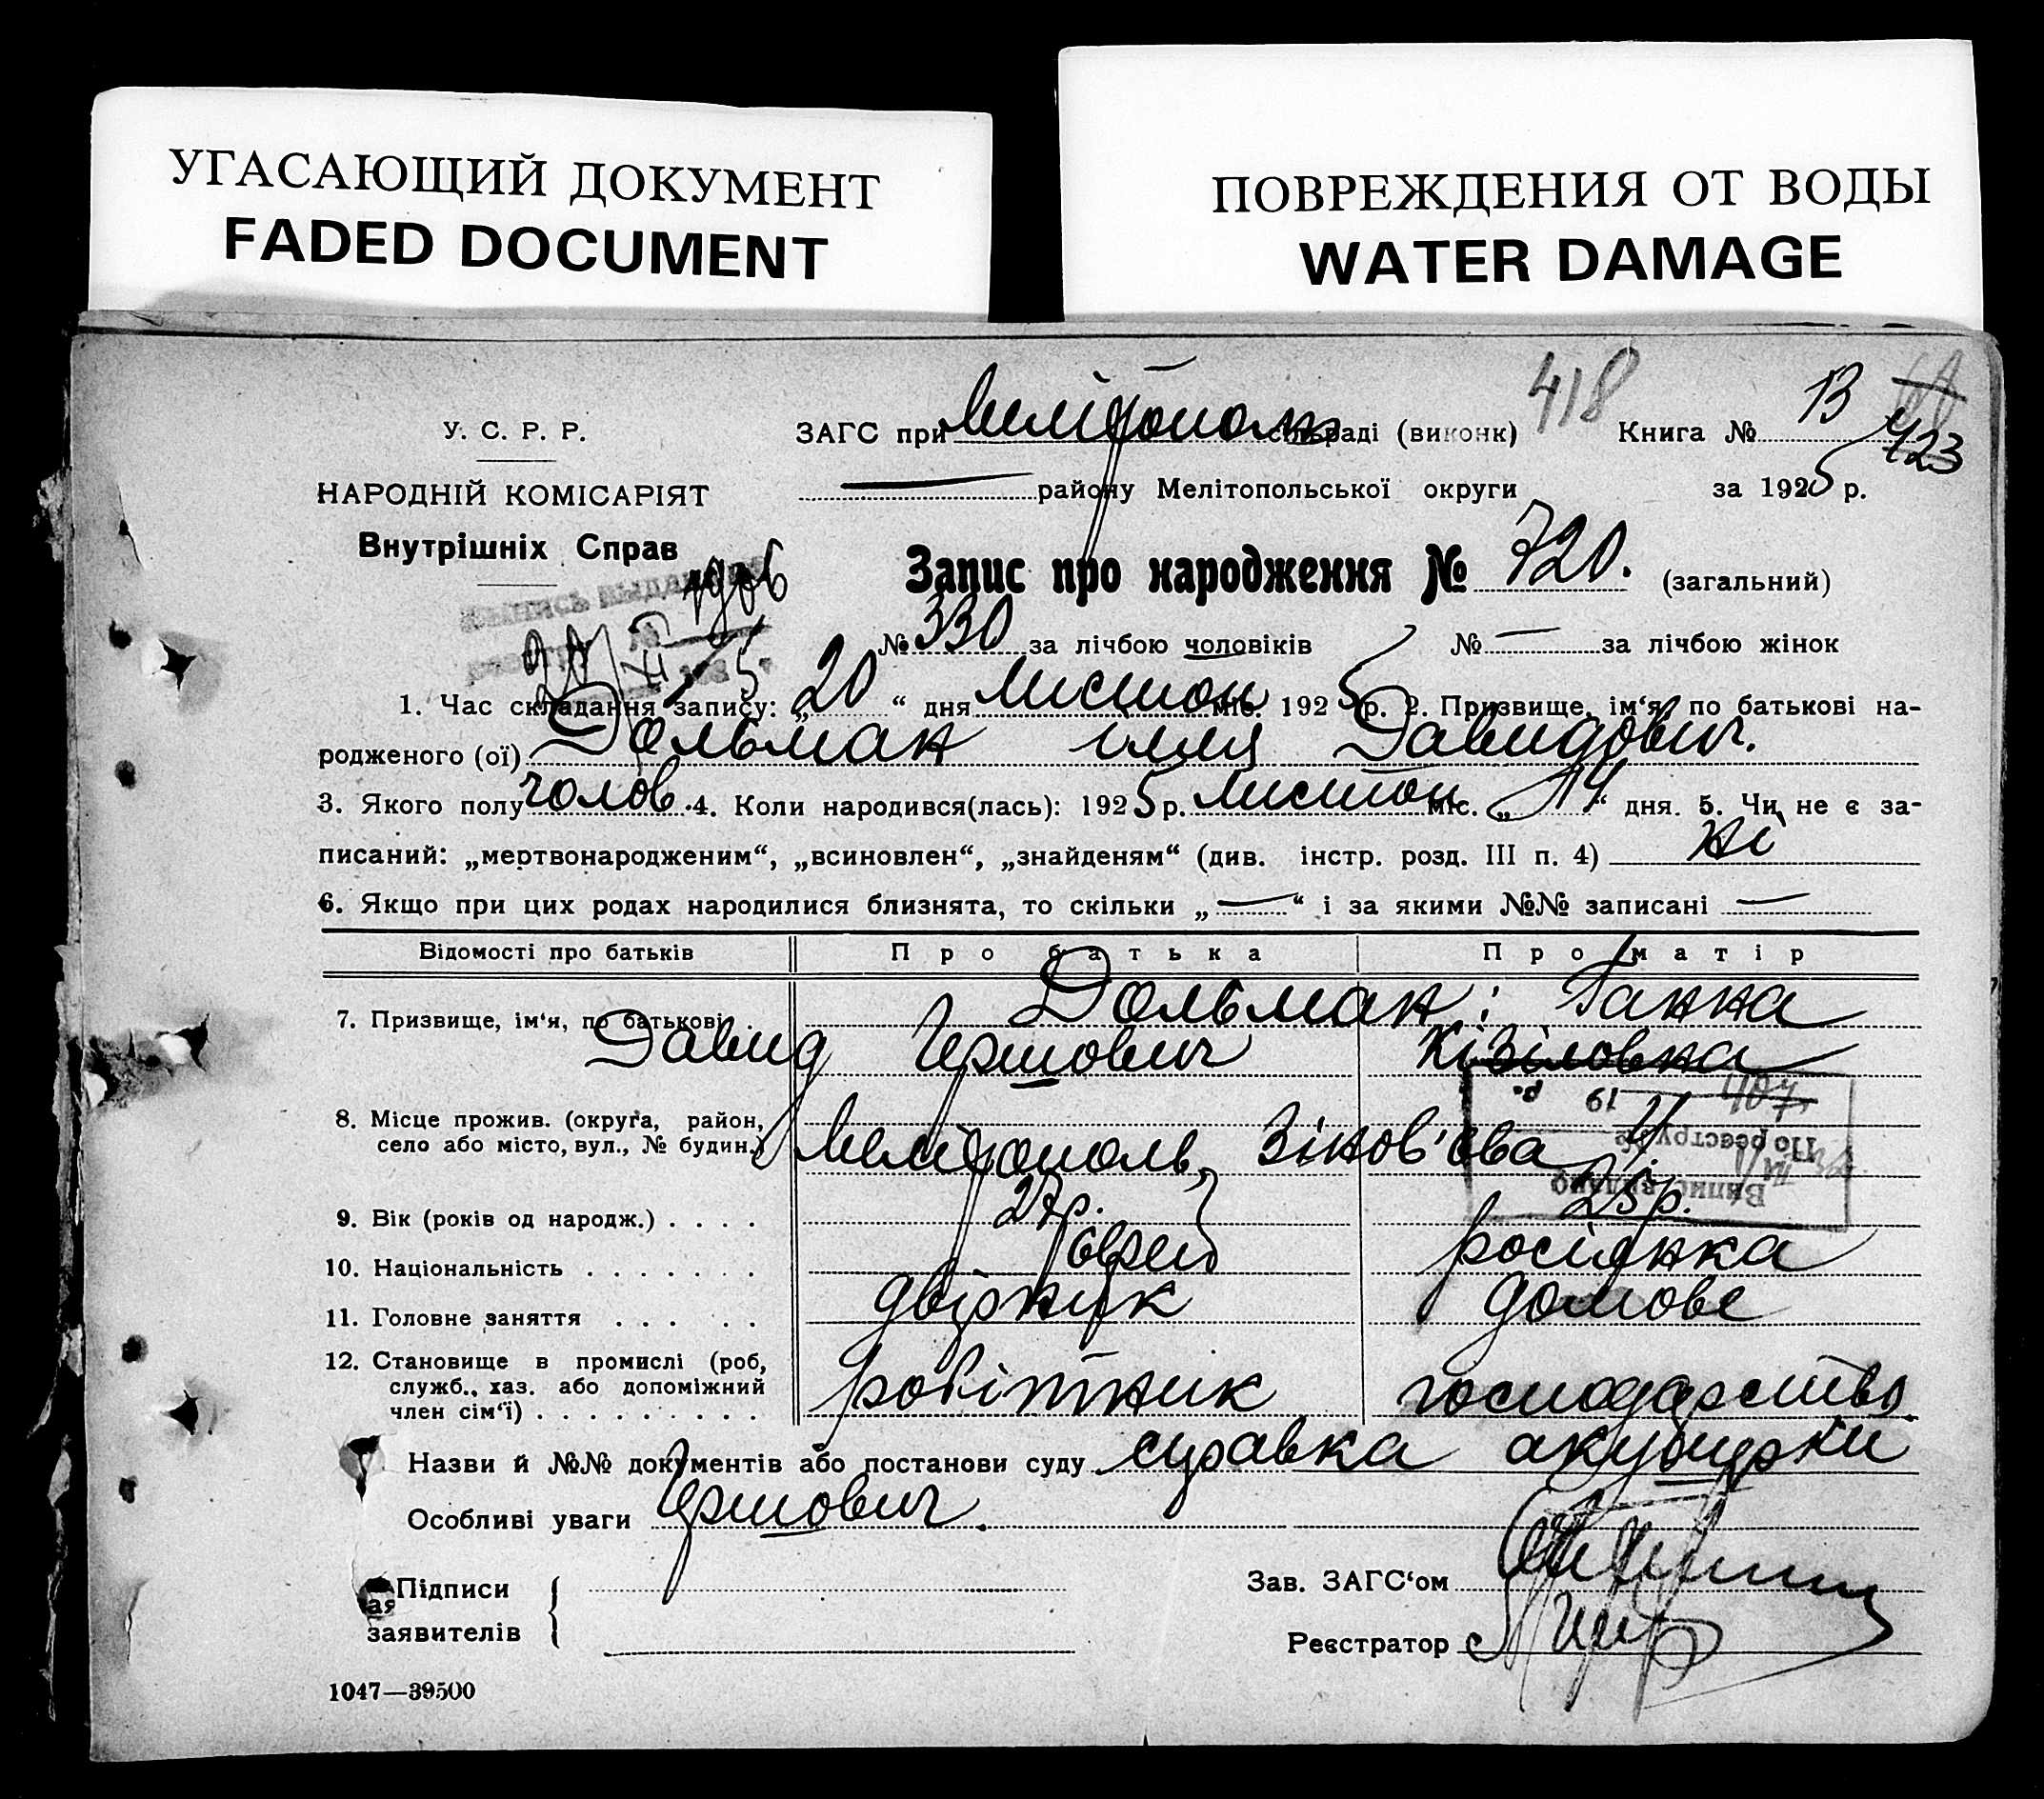 УГАСАЮЩИЙ ДОКУМЕНТ
FADED DOCUMENT
ПОВРЕЖДЕНИЯ ОТ ВОДЫ
WATER DAMAGE
418
У. С. Р. Р.
ЗАГС при Мелітополь сільраді (виконк) Книга № 13
423
НАРОДНІЙ КОМІСАРІЯТ
району Мелітопольської округи за 1925 р.
Внутрішніх Справ
Запис про народження № 720. (загальний)
№ 330 за лічбою чоловіків № — за лічбою жінок
1. Час складання запису: „20“ дня листоп міс. 1925 р. 2. Призвище, ім‘я, по батькові на-
родженого (ої) Дольман Ілля Давидович.
3. Якого полу чолов. 4. Коли народився(лась): 1925 р. листоп міс. „14“ дня. 5. Чи не є за-
писаний: „мертвонародженим“, „всиновлен“, „знайденям“ (див. інстр. розд. III п. 4) ні
6. Якщо при цих родах народилися близнята, то скільки „—“ і за якими №№ записані —
Відомості про батьків Про батька Про матір
7. Призвище, ім‘я, по батькові Дольман: Ганна
Давид Гершович Кізіловна
8. Місце прожив. (округа, район,
село або місто, вул., № будин.) Мелітополь, Зінов'єва
9. Вік (років од народж.) . . . . 27р. 25р.
10. Національність . . . . . . . єврей росіянка
11. Головне заняття . . . . . двірник домове
12. Становище в промислі (роб,
служб., хаз. або допоміжний
член сім‘ї) . . . . . . . . . робітник господарство.
Назви й №№ документів або постанови суду справка акушерки
Особливі уваги Гершович.
Підписи
заявителів
Зав. ЗАГС‘ом
Реєстратор
1047—39500